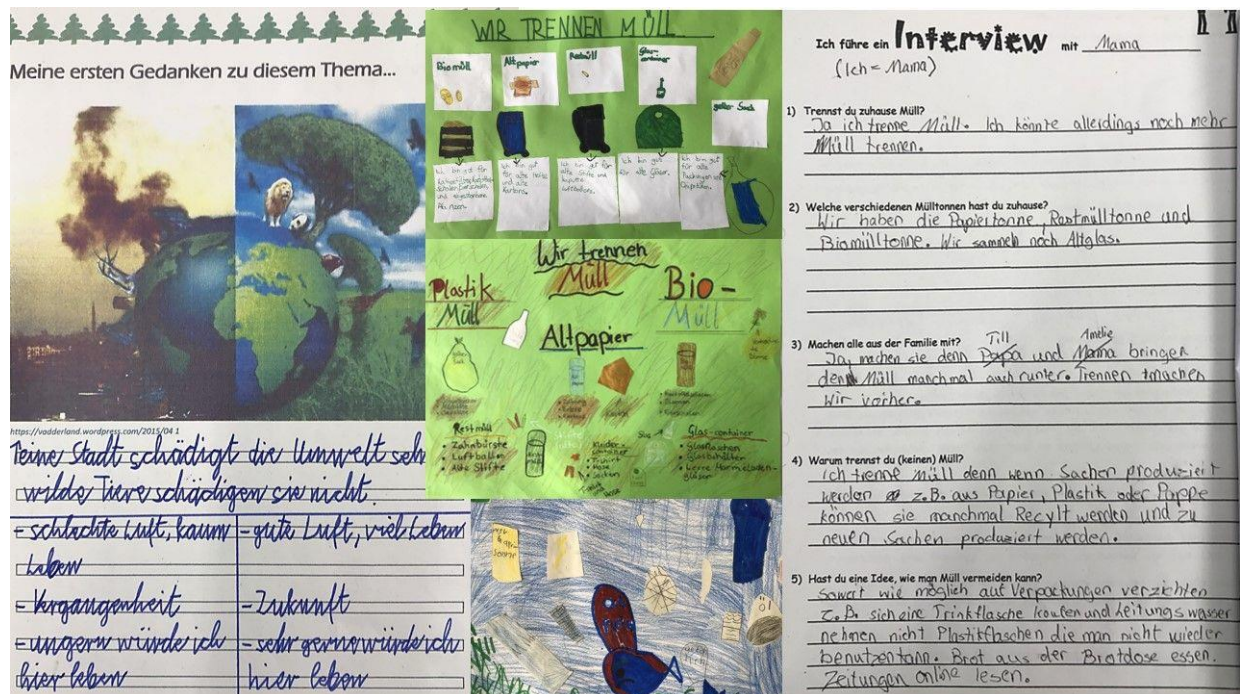 Meine ersten Gedanken zu diesem Thema...
https://vadderland.wordpress.com/2015/04 1
Teine Stadt schädigt die Umwelt seh
wilde Tiere schädigen sie nicht.
- schlechte Luft, kaum
Leben
- Vergangenheit
- ungern würde ich
hier leben
- gute Luft, viel Leben
- Zukunft
- sehr gerne würde ich
hier leben
WIR TRENNEN MÜLL
Biomüll
Altpapier
Restmüll
Glas-
container
gelber Sack
Ich bin gut für
alte Hefte
und alte
Kartons.
Ich bin gut für
alte Stifte und
kaputte
Luftballons.
Ich bin gut
für alle Gläser.
Ich bin gut
für alle
Wir trennen
Müll
Plastik
Müll
Bio-
Müll
Altpapier
Restmüll
• Zahnbürste
• Luftballon
• Alte Stifte
Kleider-
container
• T-shirt
• Hose
• Socken
Glas-container
• Glasflaschen
• Glasbehälter
• Leere Marmeladen-
gläser
Öl
Ich führe ein Interview mit Mama
(Ich = Mama)
1) Trennst du zuhause Müll?
Ja ich trenne Müll. Ich könnte allerdings noch mehr
Müll trennen.
2) Welche verschiedenen Mülltonnen hast du zuhause?
Wir haben die Papiertonne, Restmülltonne und
Biomülltonne. Wir sammeln noch Altglas.
3) Machen alle aus der Familie mit?
Till Amelie
Ja, machen sie denn Papa und Mama bringen
den Müll manchmal auch runter. Trennen machen
wir vorher.
4) Warum trennst du (keinen) Müll?
Ich trenne Müll denn wenn Sachen produziert
werden z.B. aus Papier, Plastik oder Pappe
können sie manchmal Recylt werden und zu
neuen Sachen produziert werden.
5) Hast du eine Idee, wie man Müll vermeiden kann?
Sowart wie möglich auf Verpackungen verzichten
z.B. sich eine Trinkflasche kaufen und Leitungswasser
nehmen nicht Plastikflaschen die man nicht wieder
benutzen kann. Brot aus der Brotdose essen.
Zeitungen online lesen.